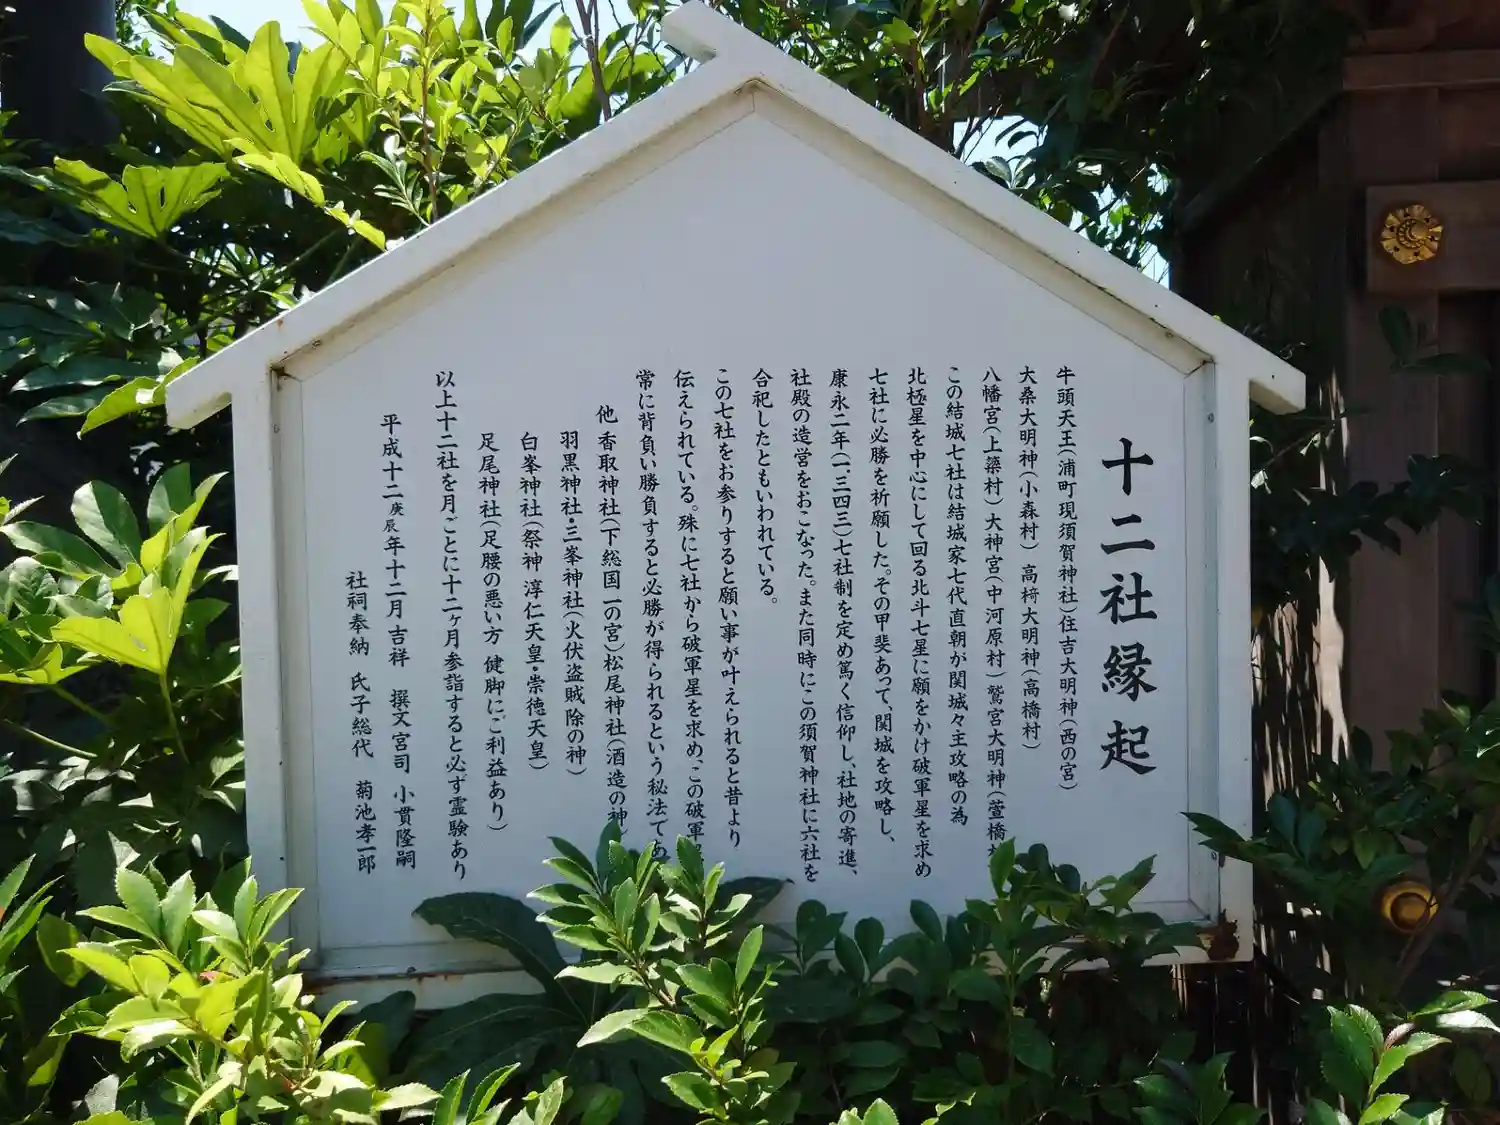 十二社縁起
牛頭天王(浦町現須賀神社)住吉大明神(西の宮)
大桑大明神(小森村) 高椅大明神(高橋村)
八幡宮(上簗村) 大神宮(中河原村)鷲宮大明神(萱橋
この結城七社は結城家七代直朝が関城々主攻略の為
北極星を中心にして回る北斗七星に願をかけ破軍星を求め
七社に必勝を祈願した。その甲斐あって、関城を攻略し、
康永二年(一三四三)七社制を定め篤く信仰し、社地の寄進、
社殿の造営をおこなった。また同時にこの須賀神社に六社を
合祀したともいわれている。
この七社をお参りすると願い事が叶えられると昔より
伝えられている。殊に七社から破軍星を求め、この破軍
常に背負い勝負すると必勝が得られるという秘法であ
他 香取神社(下総国一の宮)松尾神社(酒造の神)
羽黒神社・三峯神社(火伏盗賊除の神)
白峯神社(祭神 淳仁天皇・崇徳天皇)
足尾神社(足腰の悪い方 健脚にご利益あり)
以上十二社を月ごとに十二ヶ月参詣すると必ず霊験あり
平成十二庚辰年十二月吉祥 撰文宮司 小貫隆嗣
社祠奉納 氏子総代 菊池孝一郎